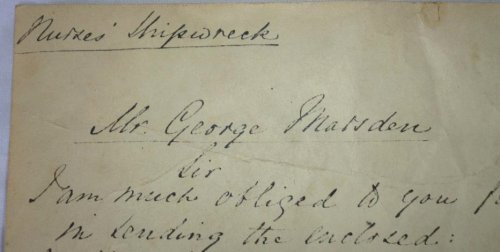 Nurses' Shipwreck
Mr. George Marsden
Sir
I am much obliged to you
in sending the enclosed: